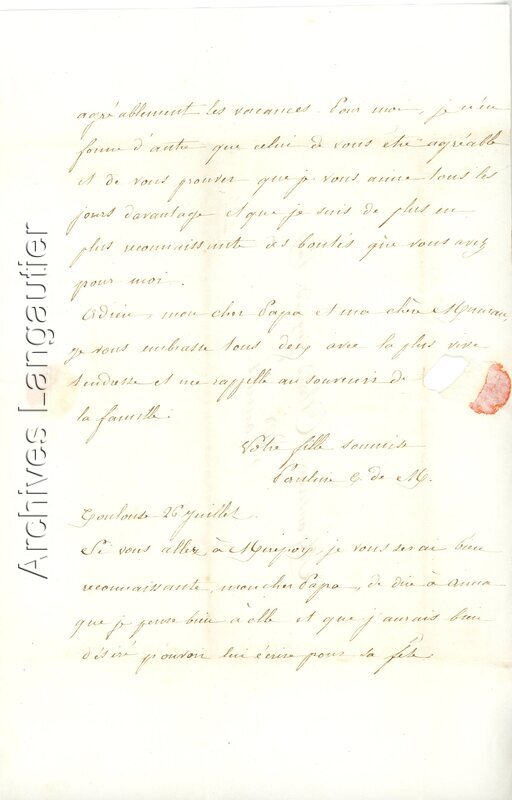 agréablement les vacances. Pour moi, je n'en
forme d'autre que celui de vous être agréable
et de vous prouver que je vous aime tous les
jours davantage et que je suis de plus en
plus reconnaissante des bontés que vous avez
pour moi.
Adieu, mon cher Papa et ma chère Maman,
je vous embrasse tous deux avec la plus vive
tendresse et me rappelle au souvenir de
la famille.
Votre fille soumise
Pauline G de M.
Toulouse 26 Juillet.
Si vous allez à Mirepoix je vous serai bien
reconnaissante, mon cher Papa, de dire à Anna
que je pense bien à elle et que j'aurais bien
désiré pouvoir lui écrire pour sa fête.
Archives Langautier